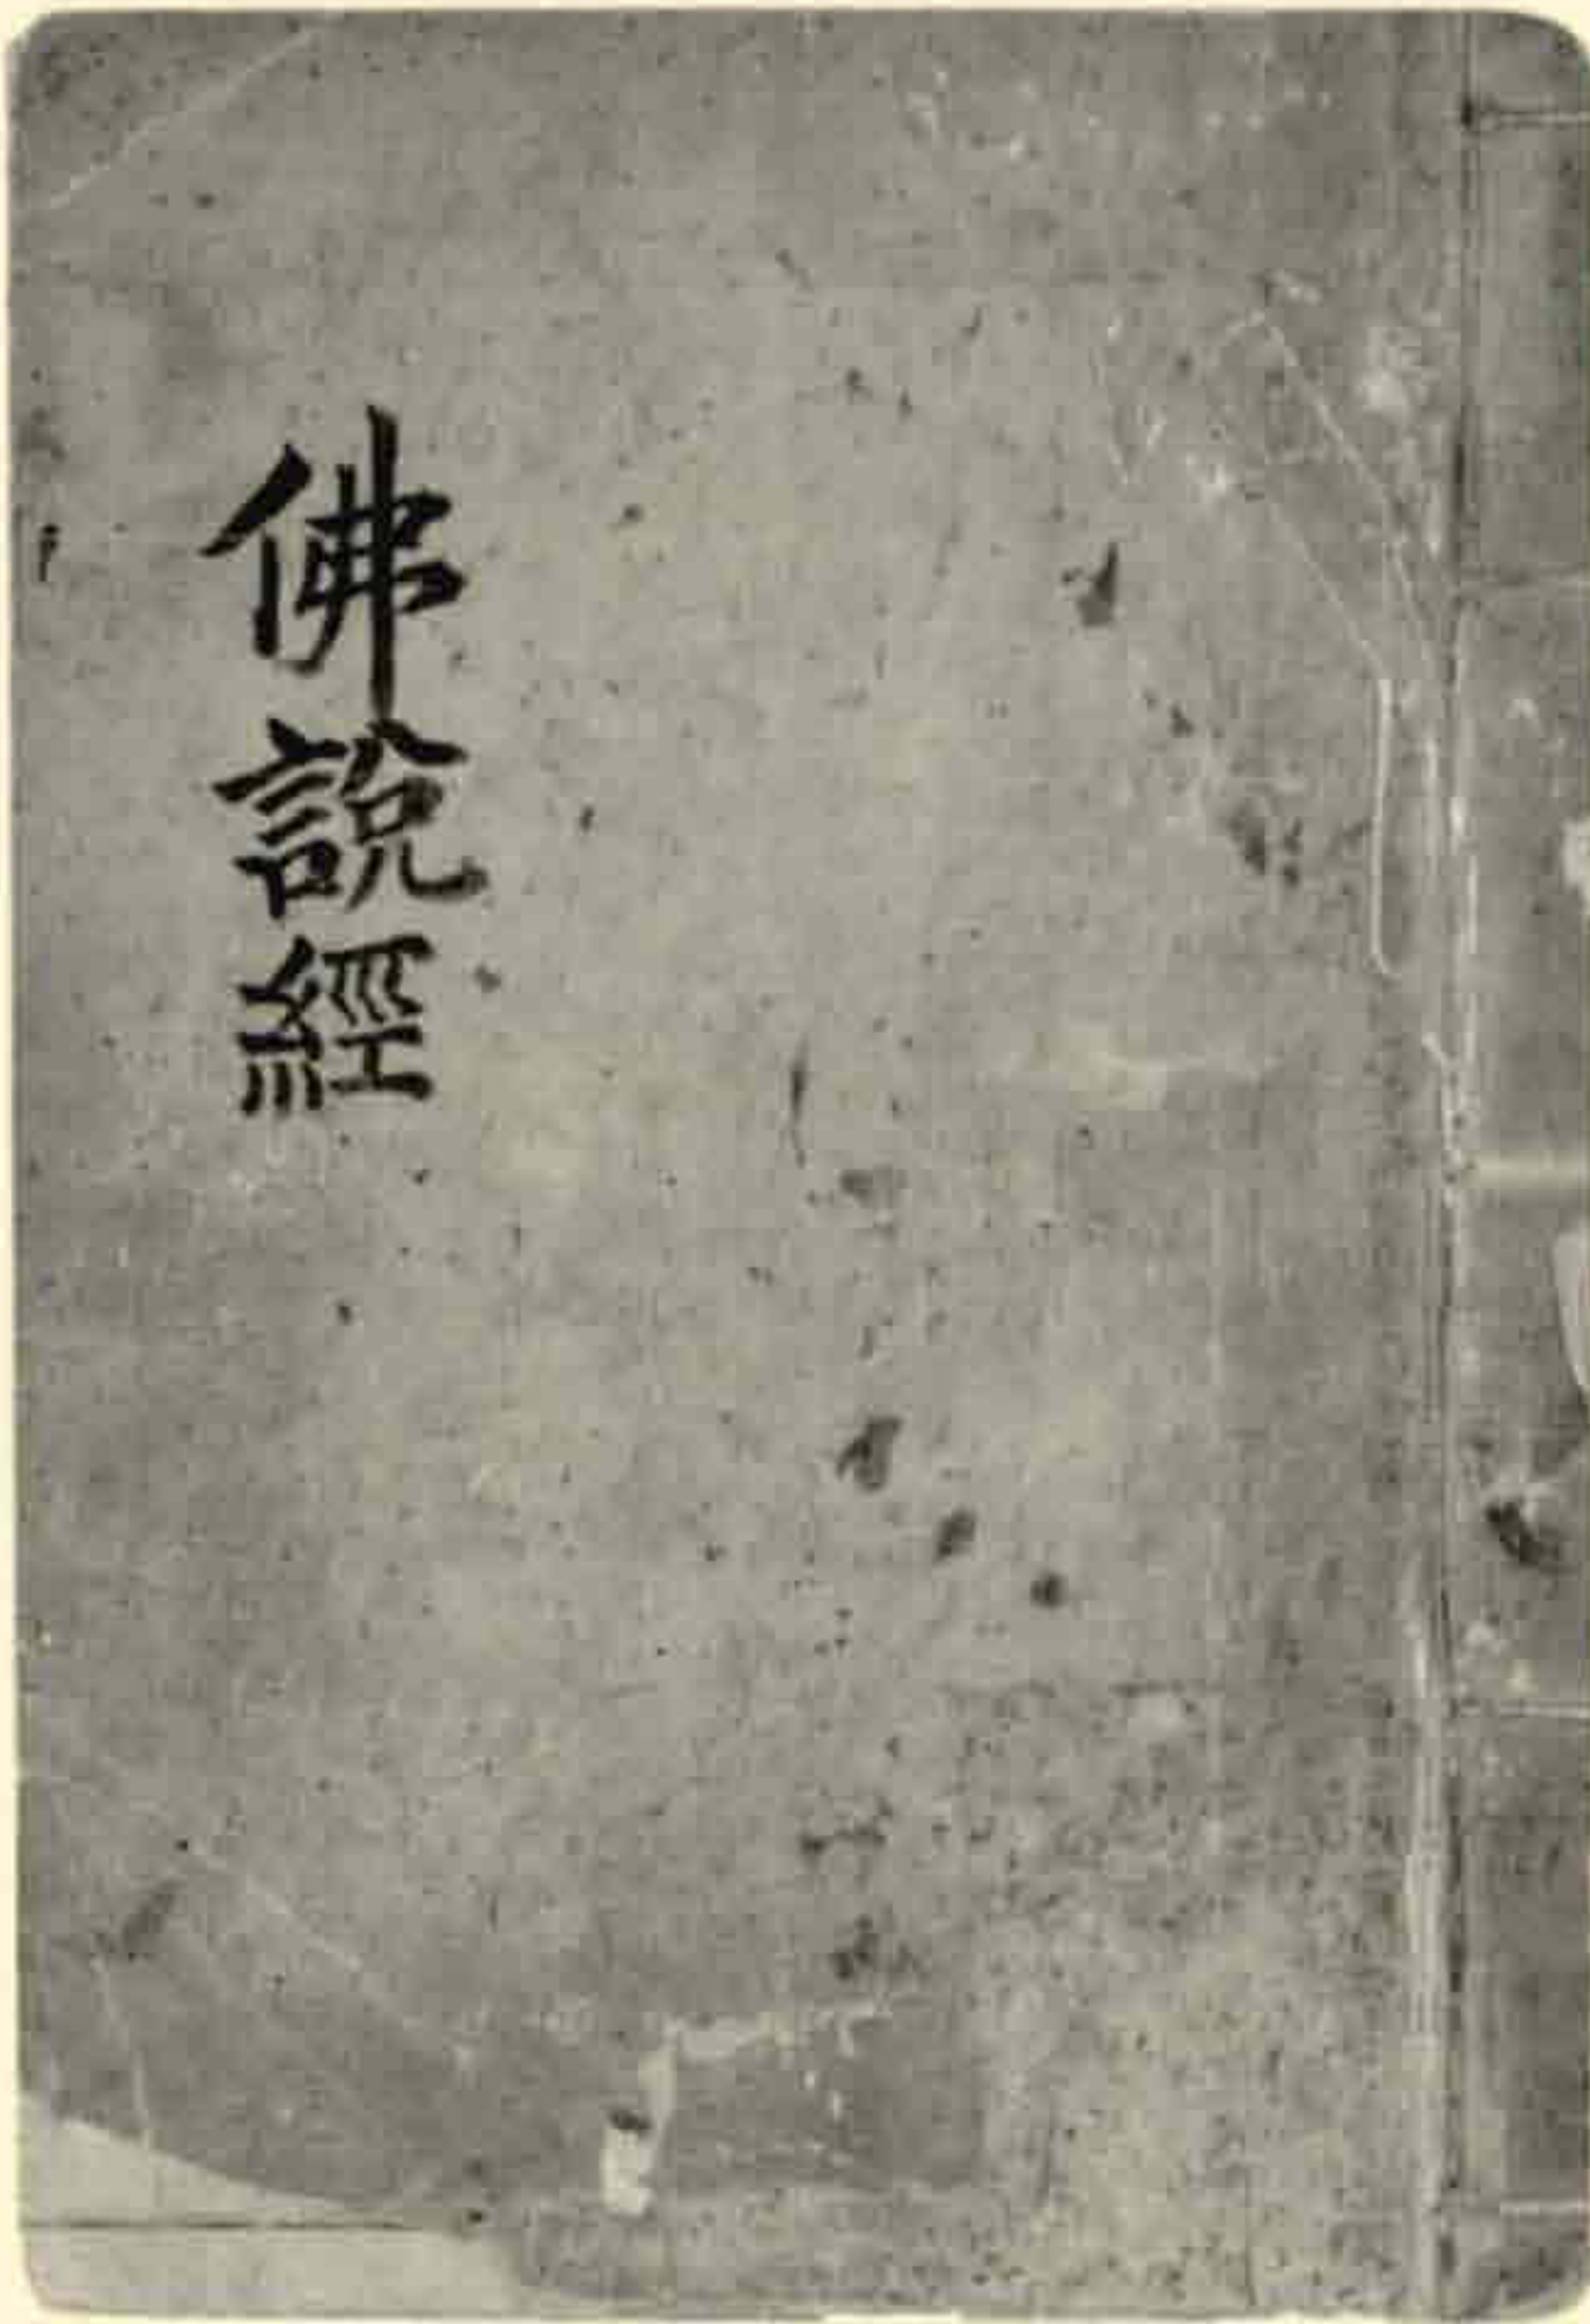 佛說經